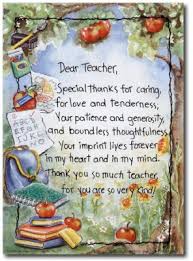 Dear Teacher,
Special thanks for caring,
for love and tenderness,
Your patience and generosity,
and boundless thoughtfulness
Your imprint lives forever
in my heart and in my mind.
Thank you so much teacher,
for you are so very kind!